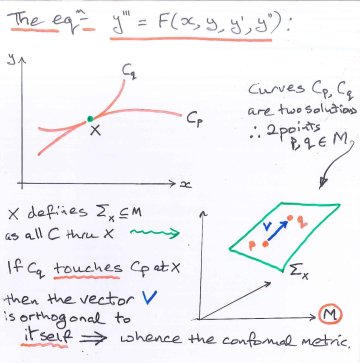 The eqⁿ y''' = F(x, y, y', y''):
y
C_q
C_p
X
x
Curves C_p, C_q
are two solutions
∴ 2 points
p, q ∈ M
X defines Σ_x ⊆ M
as all C thru X
If C_q touches C_p at X
then the vector V
is orthogonal to
itself ⟹ whence the conformal metric.
p
V
q
Σ_x
M